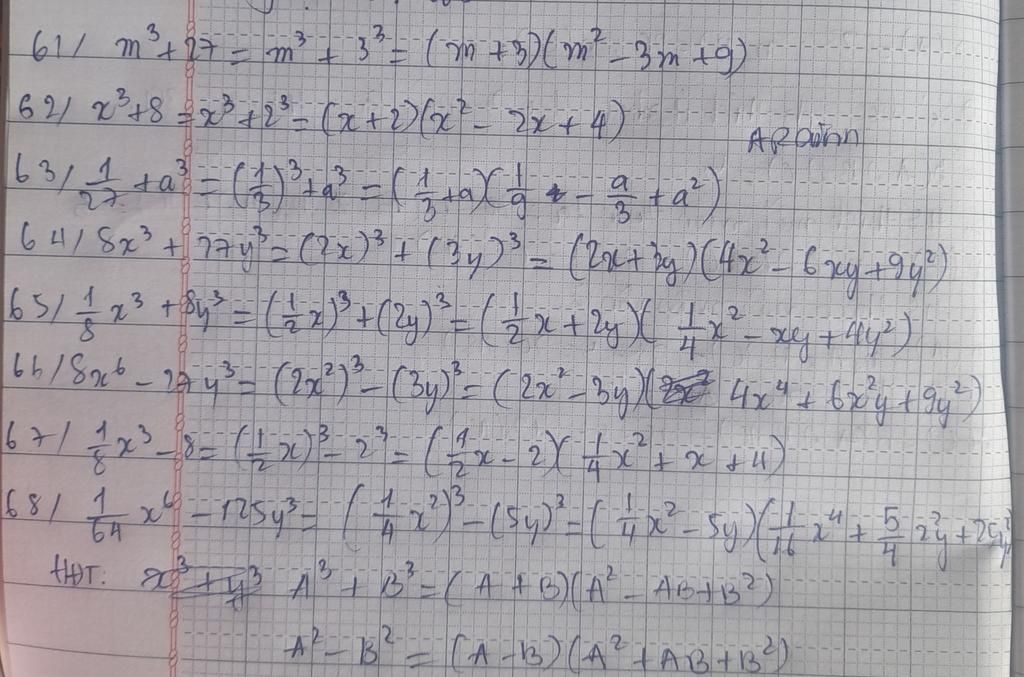 61/ m³+27 = m³ + 3³ = (m+3)(m² - 3m+9)
62/ x³+8 = x³+2³ = (x+2)(x² - 2x+4)
63/ 1/27 + a³ = (1/3)³+a³ = (1/3+a)(1/9 - a/3 + a²)
64/ 8x³ + 27y³ = (2x)³ + (3y)³ = (2x+3y)(4x² - 6xy+9y²)
65/ 1/8 x³ + 8y³ = (1/2 x)³+(2y)³ = (1/2 x+2y)(1/4 x² - xy+4y²)
66/ 8x⁶ - 27y³ = (2x²)³ - (3y)³ = (2x² - 3y)(4x⁴ + 6x²y+9y²)
67/ 1/8 x³ - 8 = (1/2 x)³ - 2³ = (1/2 x - 2)(1/4 x² + x + 4)
68/ 1/64 x⁶ - 125y³ = (1/4 x²)³ - (5y)³ = (1/4 x² - 5y)(1/16 x⁴ + 5/4 x²y + 25y²)
x³+y³ A³ + B³ = (A+B)(A² - AB+B²)
A² - B² = (A-B)(A² + AB + B²)